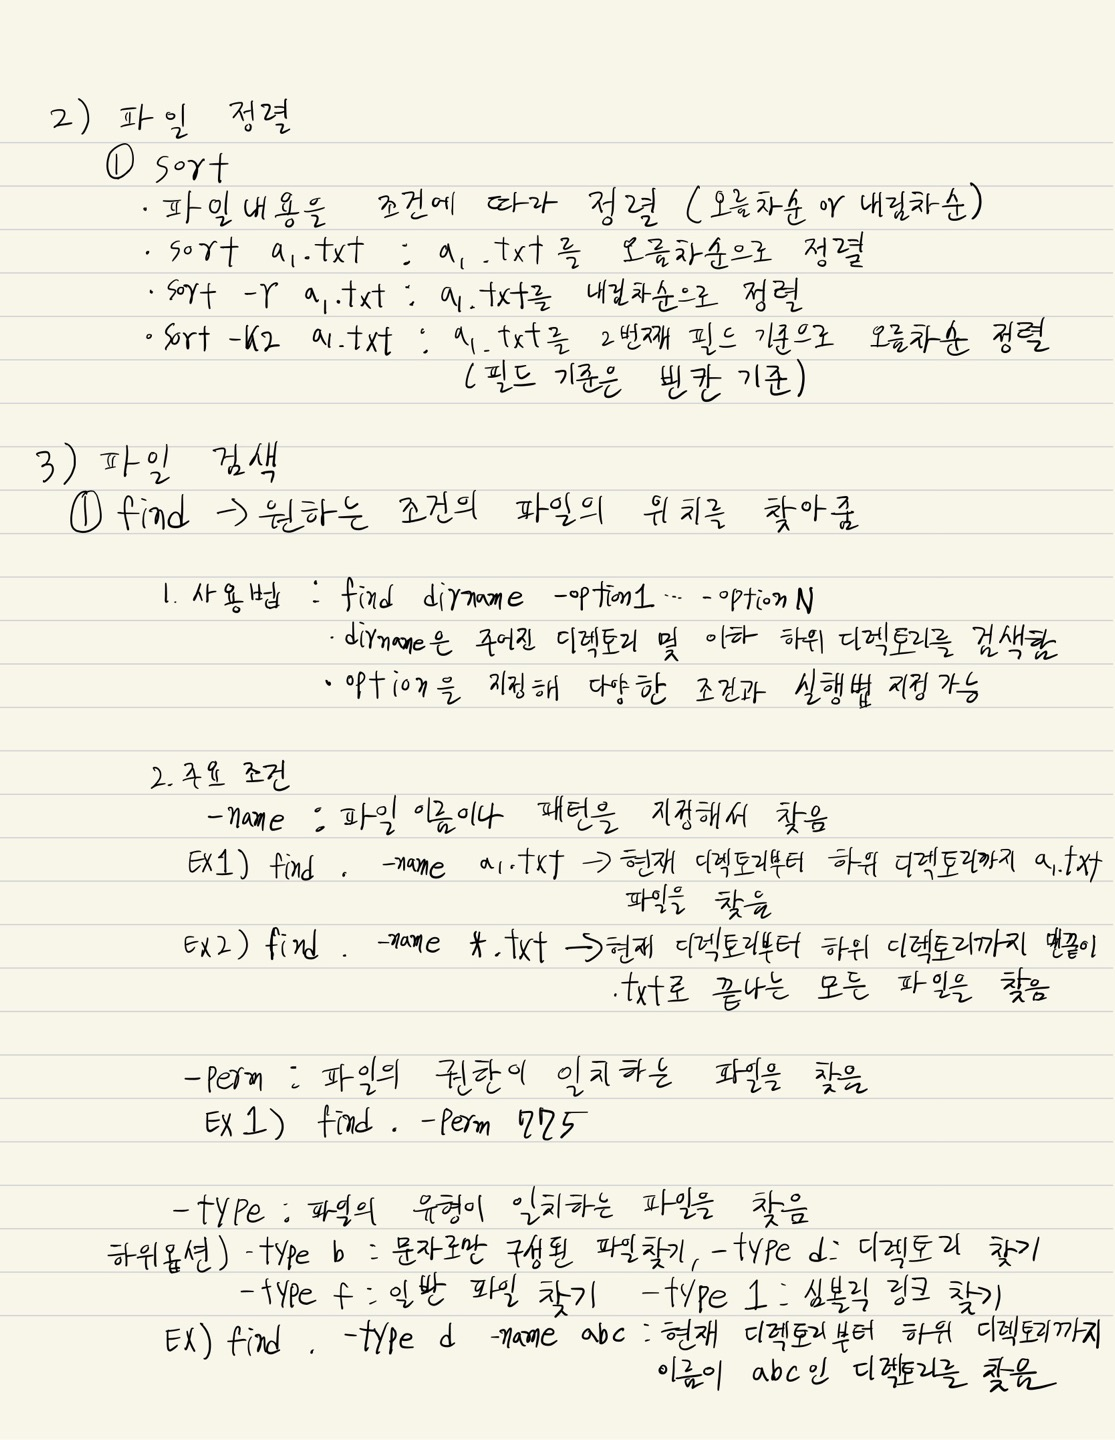 2) 파일 정렬
① sort
· 파일내용을 조건에 따라 정렬 (오름차순 or 내림차순)
· sort a1.txt : a1.txt를 오름차순으로 정렬
· sort -r a1.txt : a1.txt를 내림차순으로 정렬
· sort -k2 a1.txt : a1.txt를 2번째 필드 기준으로 오름차순 정렬
(필드 기준은 빈칸 기준)
3) 파일 검색
① find → 원하는 조건의 파일의 위치를 찾아줌
1. 사용법 : find dirname -option1 ... -optionN
· dirname은 주어진 디렉토리 및 이하 하위 디렉토리를 검색함
· option을 지정해 다양한 조건과 실행법 지정 가능
2. 주요 조건
-name : 파일 이름이나 패턴을 지정해서 찾음
EX1) find . -name a1.txt → 현재 디렉토리부터 하위 디렉토리까지 a1.txt
파일을 찾음
EX2) find . -name *.txt → 현재 디렉토리부터 하위 디렉토리까지 맨끝이
.txt로 끝나는 모든 파일을 찾음
-Perm : 파일의 권한이 일치하는 파일을 찾음
EX1) find . -Perm 775
-type : 파일의 유형이 일치하는 파일을 찾음
하위옵션) -type b : 문자로만 구성된 파일찾기, -type d : 디렉토리 찾기
-type f : 일반 파일 찾기 -type 1 : 심볼릭 링크 찾기
EX) find . -type d -name abc : 현재 디렉토리부터 하위 디렉토리까지
이름이 abc인 디렉토리를 찾음